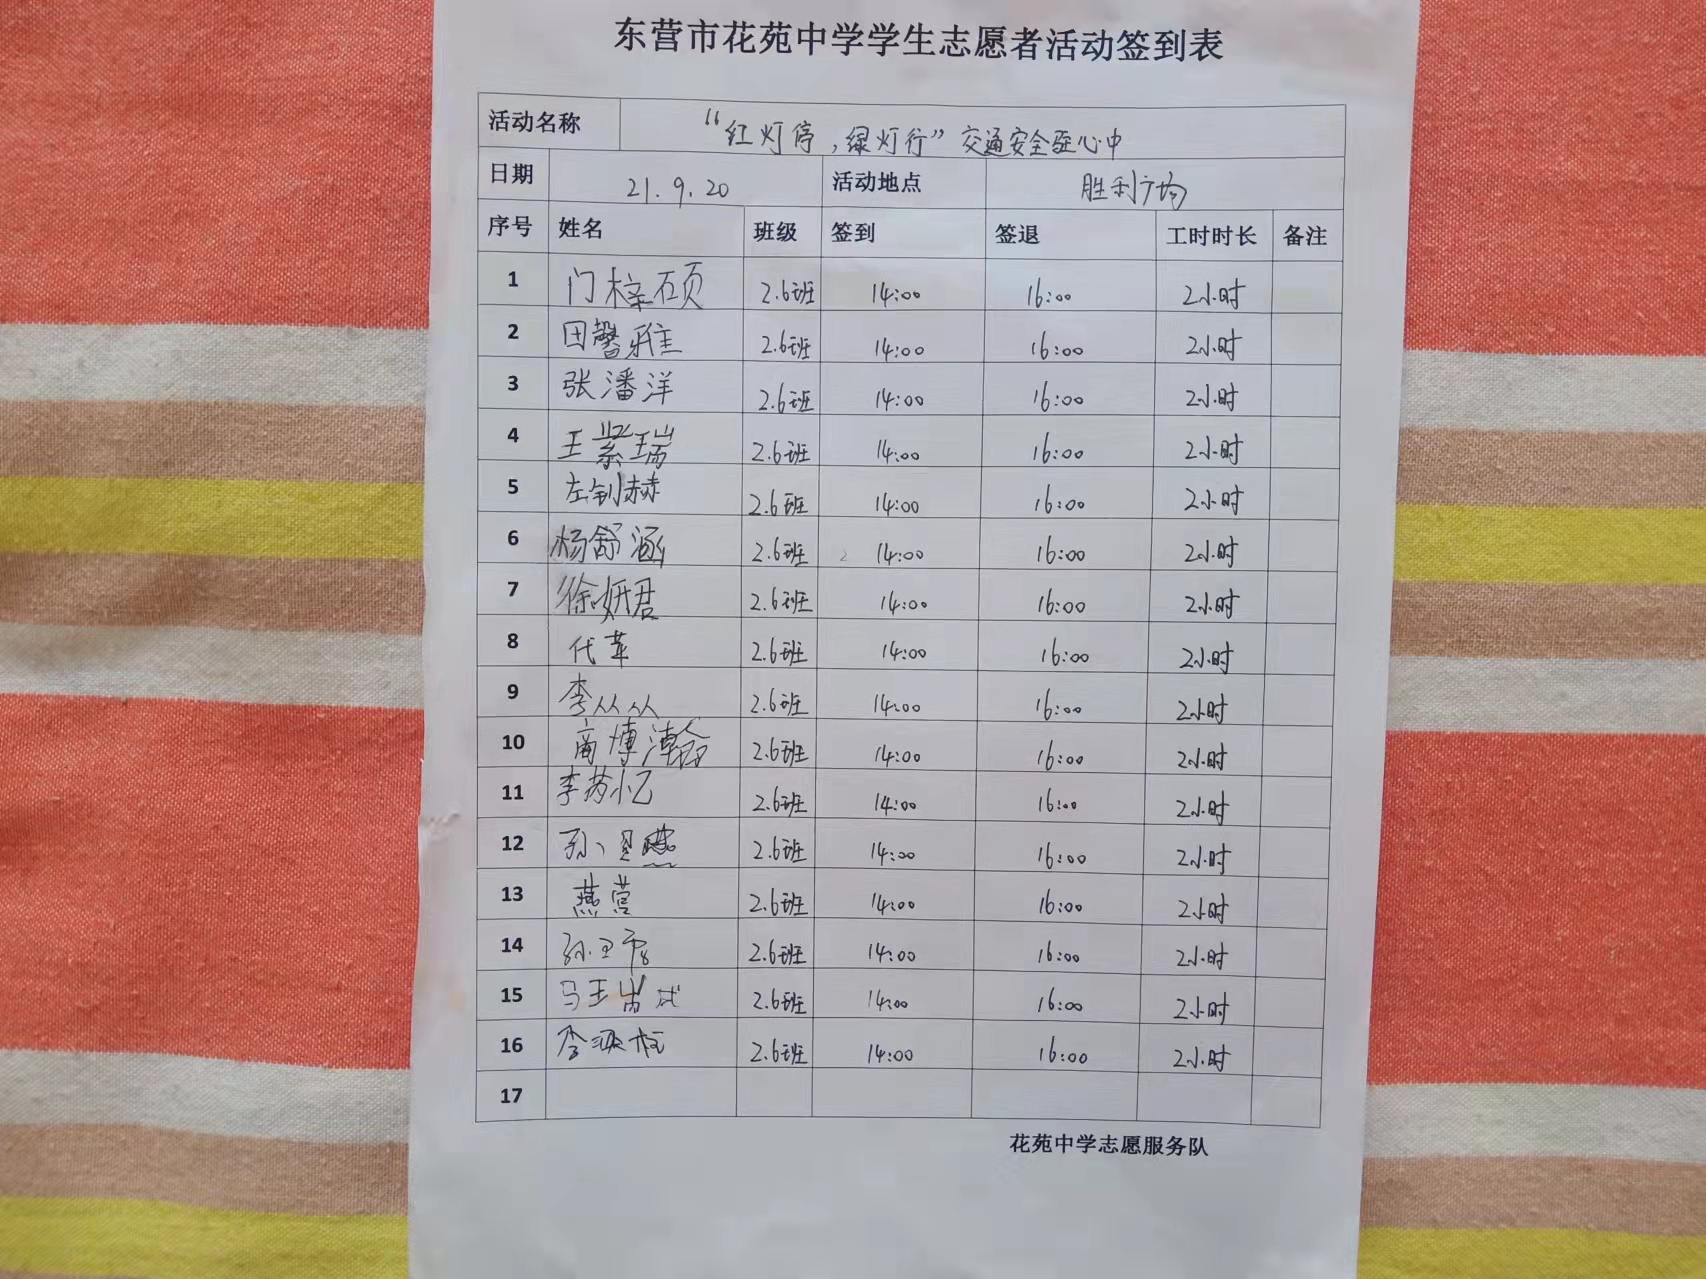 东营市花苑中学学生志愿者活动签到表
活动名称 “红灯停，绿灯行”交通安全驻心中
日期 21.9.20 活动地点 胜利广场
序号 姓名 班级 签到 签退 工时时长 备注
1 门梓硕 2.6班 14:00 16:00 2小时
2 田馨雅 2.6班 14:00 16:00 2小时
3 张潘洋 2.6班 14:00 16:00 2小时
4 王紫瑞 2.6班 14:00 16:00 2小时
5 左钊赫 2.6班 14:00 16:00 2小时
6 杨舒涵 2.6班 14:00 16:00 2小时
7 徐妍君 2.6班 14:00 16:00 2小时
8 代苹 2.6班 14:00 16:00 2小时
9 李从从 2.6班 14:00 16:00 2小时
10 商博瀚 2.6班 14:00 16:00 2小时
11 李芮忆 2.6班 14:00 16:00 2小时
12 孙 2.6班 14:00 16:00 2小时
13 燕营 2.6班 14:00 16:00 2小时
14 孙 2.6班 14:00 16:00 2小时
15 马王 2.6班 14:00 16:00 2小时
16 李 2.6班 14:00 16:00 2小时
17
花苑中学志愿服务队